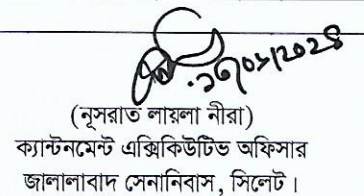 ২৩/০১/২০২৪
(নূসরাত লায়লা নীরা)
ক্যান্টনমেন্ট এক্সিকিউটিভ অফিসার
জালালাবাদ সেনানিবাস, সিলেট।